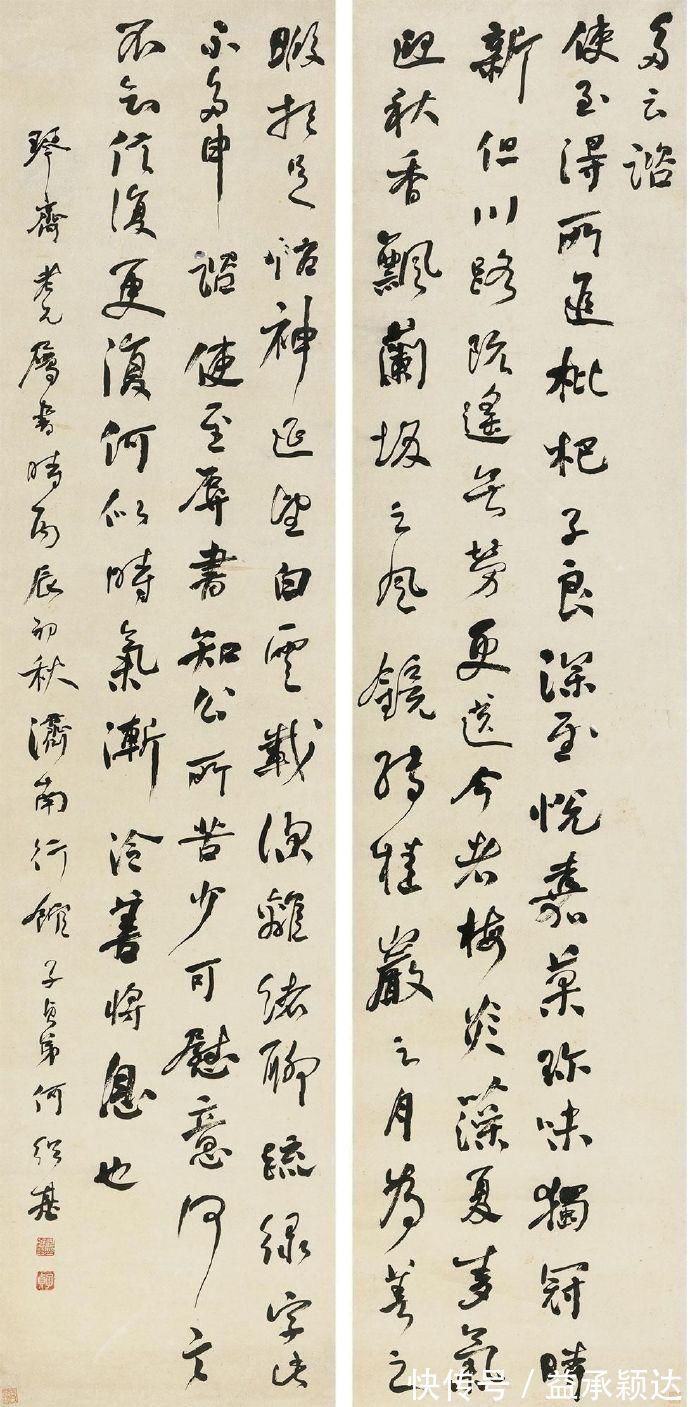 多云諮
使至得所進枇杷子良深慰悅嘉菓珍味獨冠時
新但川路既遙無勞更送今者梅炎藻夏麥氣
迎秋香飄蘭坂之風鏡轉桂巖之月為善之
暇想足怡神延望白雲載深離緒聊疏緑字此
不多申諮使至辱書知公所苦少可慰意何言
不知信復更復何似時氣漸冷善將息也
琴齋老兄屬書時丙辰初秋濟南行館子貞弟何紹基
快传号／益承颖达